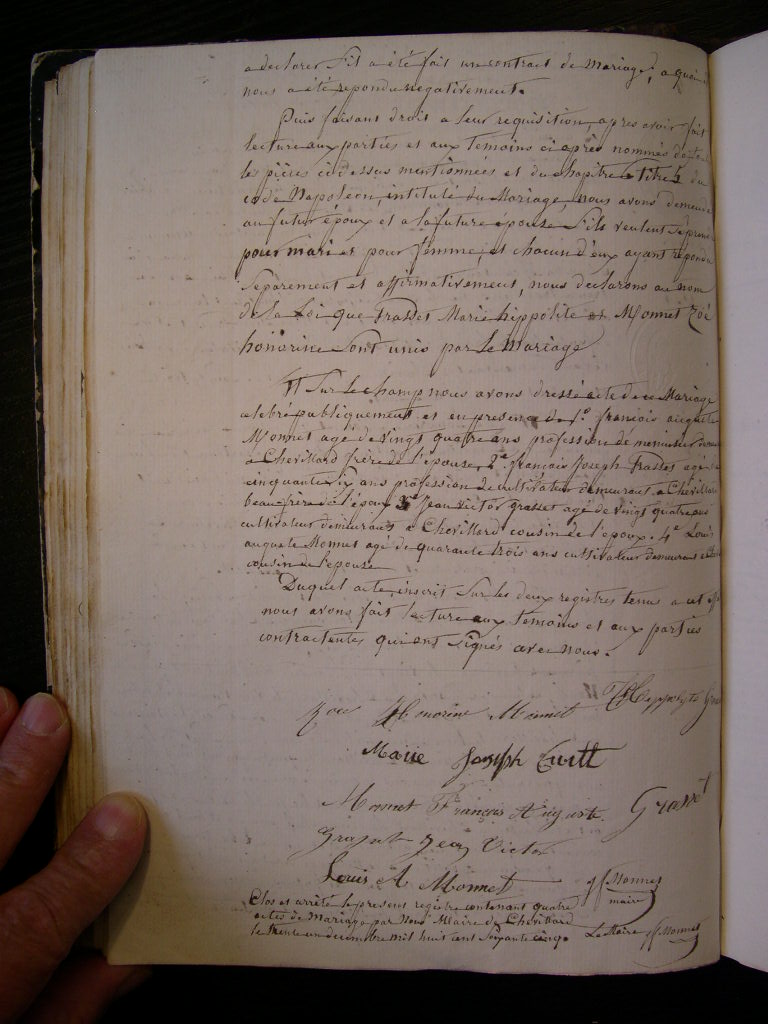 a declarer s'il a été fait un contrat de Mariage, a quoi il
nous a été repondu negativement.
Puis faisant droit a leur requisition, apres avoir fait
lecture aux parties et aux temoins ci après nommés de toutes
les pièces ci dessus mentionnées et du chapitre 6 titre 5 du
code Napoleon, intitulé du Mariage, nous avons demandé
au futur époux et a la future épouse s'ils veulent se prendre
pour mari et pour femme, et chacun d'eux ayant répondu
séparement et affirmativement, nous declarons au nom
de la Loi que Grasset Marie hippolite et Monnet Zoé
honorine sont unis par le mariage
Sur le champ nous avons dressé acte de ce Mariage
célebré publiquement et en presence de 1º. françois auguste
Monnet agé de vingt quatre ans profession de menuisier
a Chevillard frère de l'épouse, 2e. françois Joseph Grasset agé de
cinquante ans profession de cultivateur demeurant a Chevillard
beau frère de l'époux 3e Jean victor grasset agé de vingt quatre ans
cultivateur demeurant a Chevillard cousin de l'époux. 4e Louis
auguste Monnet agé de quarante trois ans cultivateur demeurant
cousin de l'epouse
Duquel acte, inscrit sur les deux registres tenus a cet
nous avons fait lecture aux temoins et aux parties
contractentes qui ont signés avec nous.
Zoee Honorine Monnet Hippolyte
Marie Joseph
Monnet François Auguste. Grasset
Jean Victor
Louis A Monnet Monnet
maire
Clos et arrêté le present registre contenant quatre
actes de mariage par Nous Maire de Chevillard
le trente un decembre mil huit cent soixante cinq. Le Maire Monnet